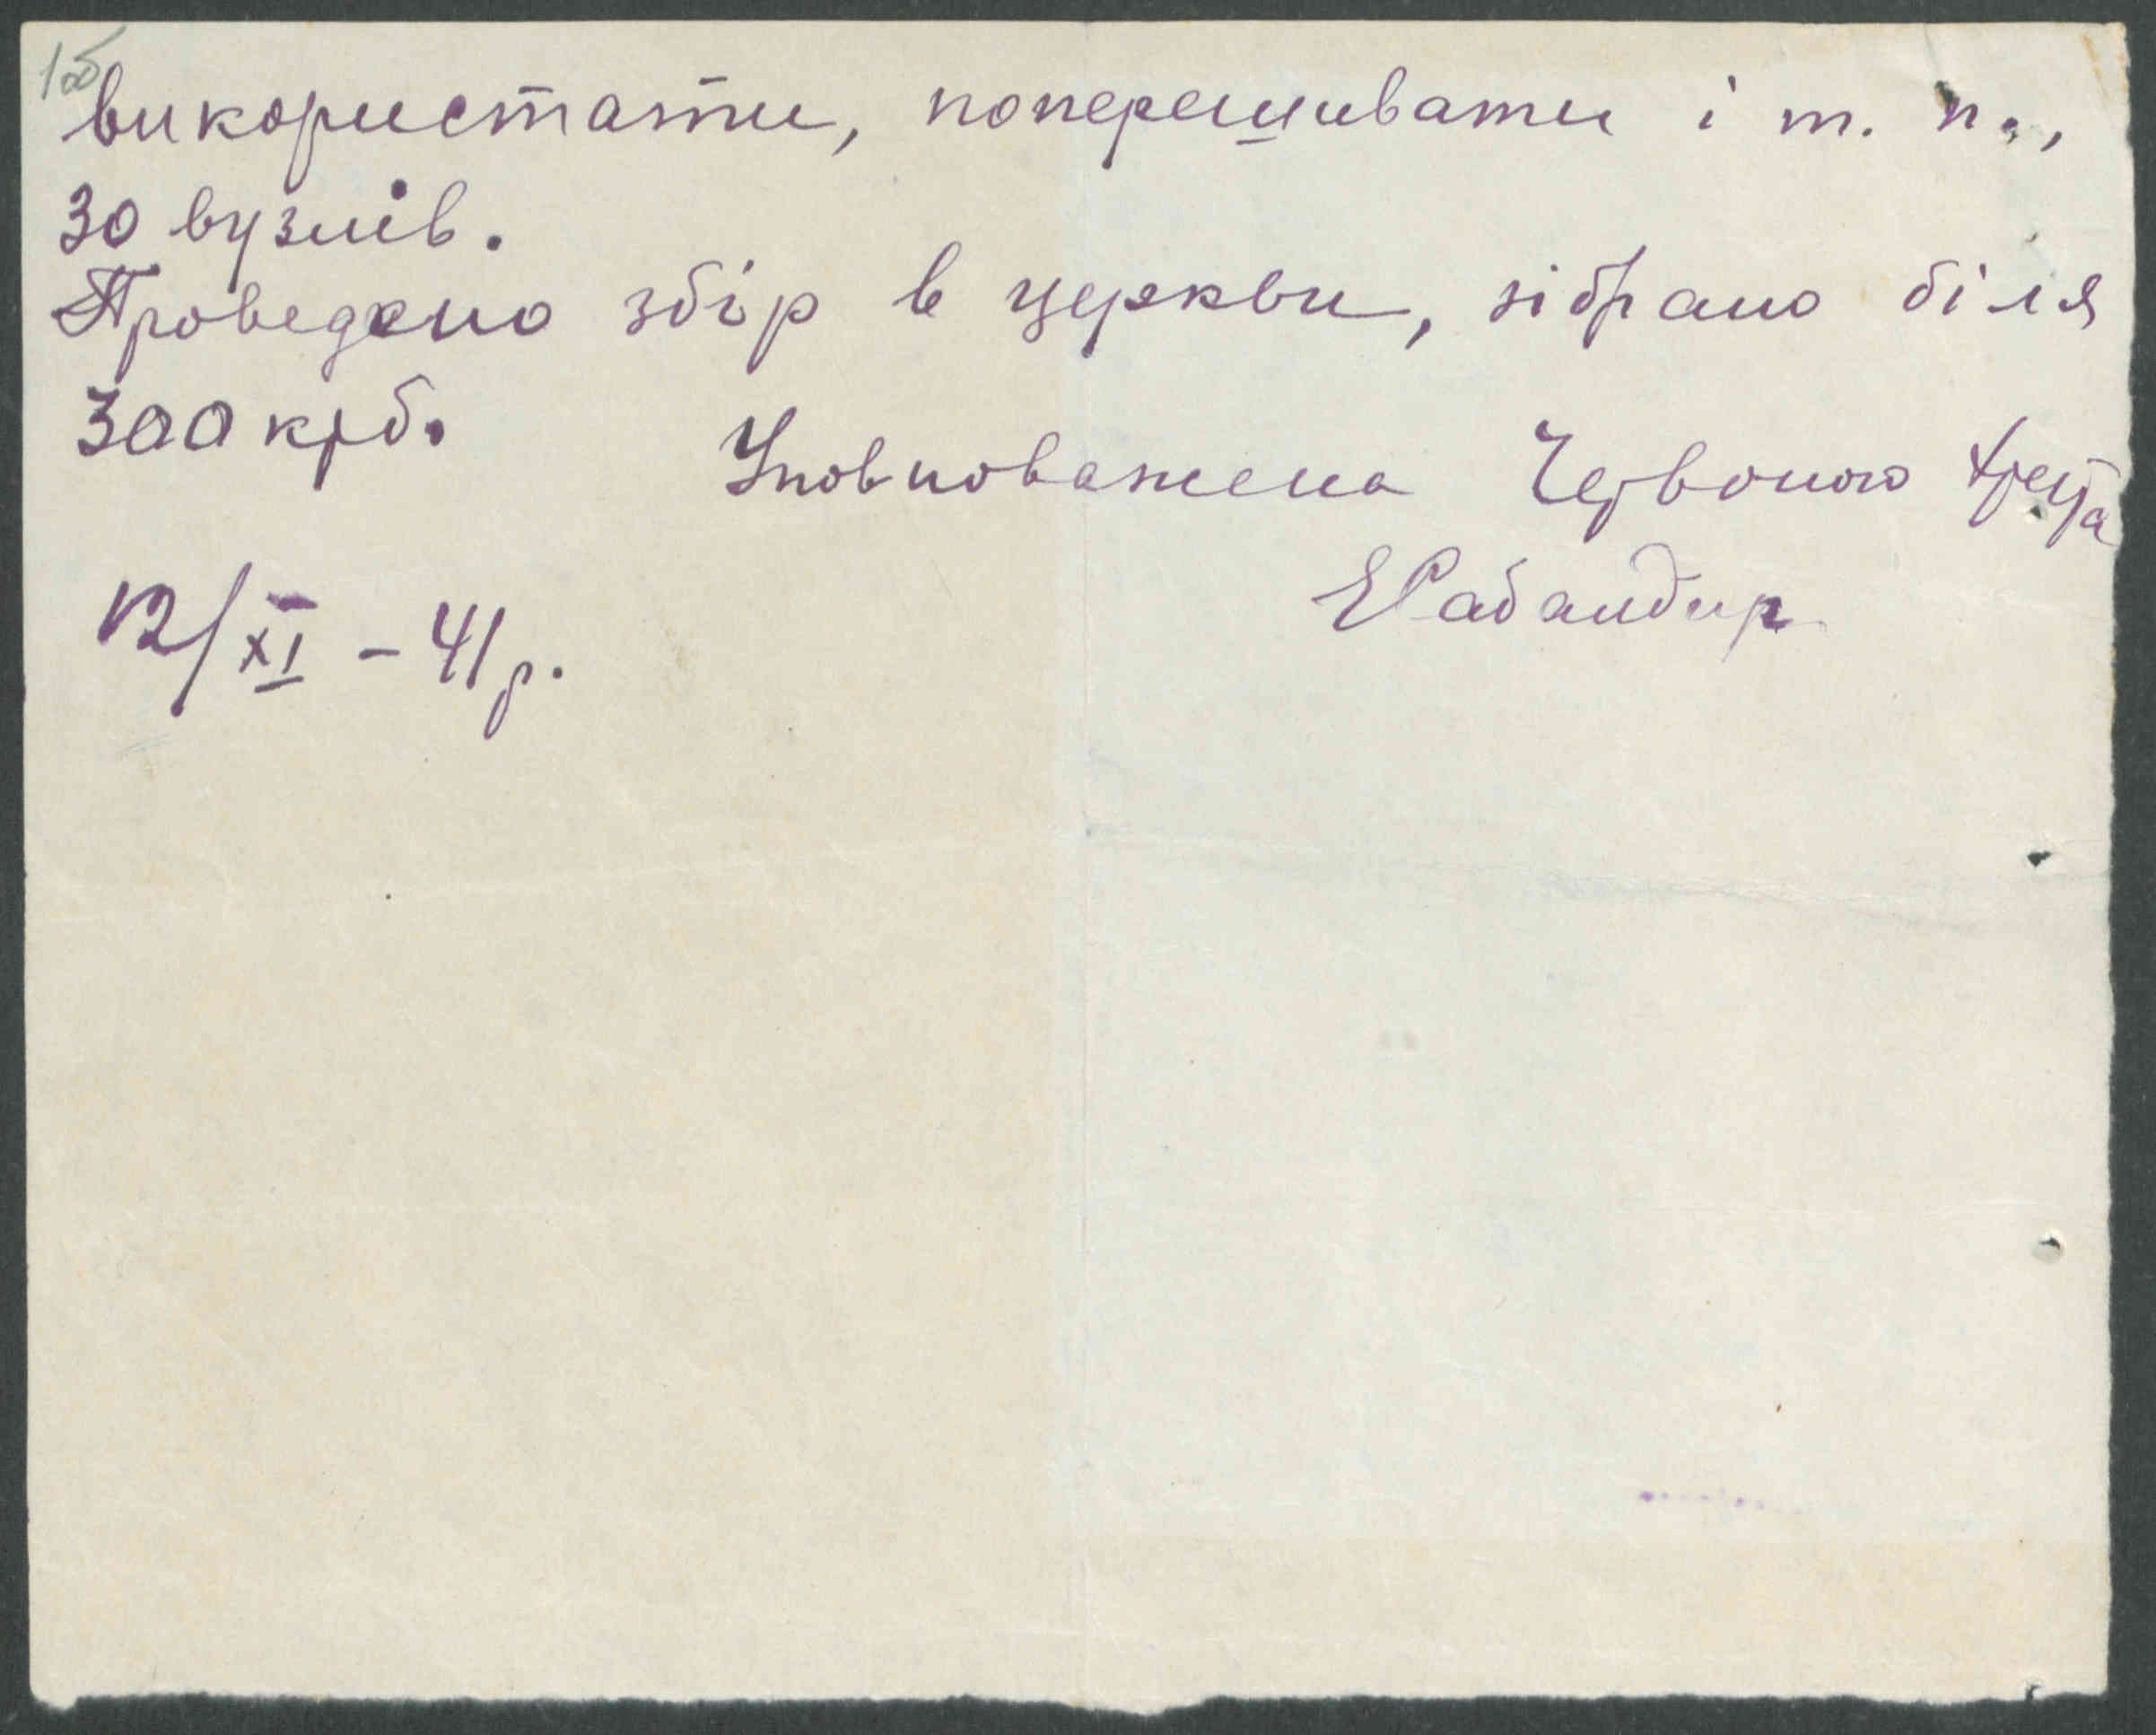 1об
використати, поперешивати і т. п.,
30 вузлів.
Проведено збір в церкви, зібрано біля
300 крб.
Уповноважена Червоного Хреста
12/XI – 41 р.